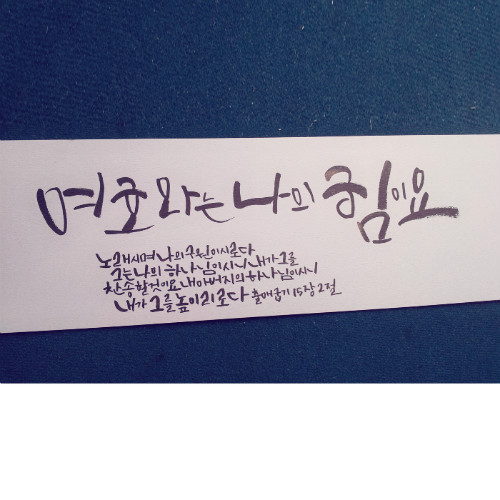 여호와는 나의 힘이요
노래시며 나의 구원이시로다
그는 나의 하나님이시니 내가 그를
찬송할 것이요 내 아버지의 하나님이시니
내가 그를 높이리로다 출애굽기 15장 2절